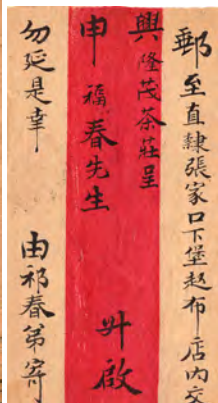 郵至直隸張家口下堡赵布店內交
興隆茂茶莊呈
申福春先生 升啟
勿延是幸 由祁春弟寄